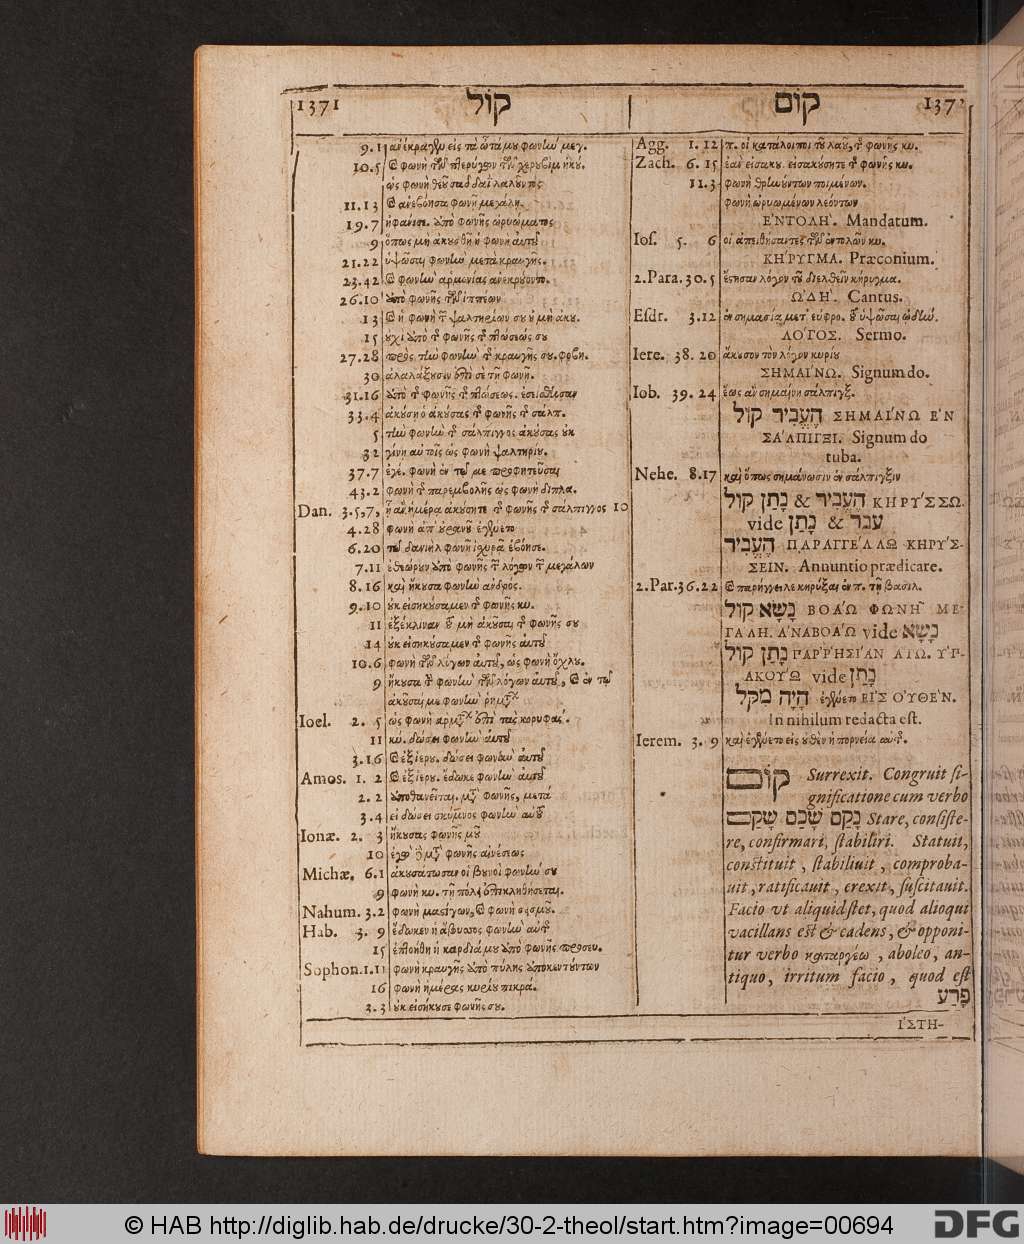 1371 קול
9.1 ἀνέκραγεν εἰς τὰ ὦτά μου φωνῇ μεγ.
10.5 καὶ φωνὴ τῶν πτερύγων τῶν χερυβὶμ ἠκού.
ὡς φωνὴ θεοῦ σαδδαὶ λαλοῦντος
11.13 καὶ ἀνεβόησα φωνῇ μεγάλῃ.
19.7 ἠφάνισε. ὑπὸ φωνῆς ὠρυώματος
9 ὅπως μὴ ἀκουσθῇ ἡ φωνὴ αὐτοῦ
21.22 ὑψῶσαι φωνὴν μετὰ κραυγῆς.
23.42 καὶ φωνὴν ἁρμονίας ἀνεκρούοντο.
26.10 ὑπὸ φωνῆς τῶν ἱππέων
13 καὶ ἡ φωνὴ τῶν ψαλτηρίων σου οὐ μὴ ἀκου.
15 οὐχὶ ὑπὸ τῆς φωνῆς τῆς πτώσεώς σου
27.28 πρὸς τὴν φωνὴν τῆς κραυγῆς σου. φοβη.
30 ἀλαλάξουσιν ἐπὶ σὲ τῇ φωνῇ.
31.16 ὑπὸ τῆς φωνῆς τῆς πτώσεως. ἐσείσθησαν
33.4 ἀκούσῃ ὁ ἀκούσας τῆς φωνῆς τῆς σάλπ.
5 τὴν φωνὴν τῆς σάλπιγγος ἀκούσας οὐκ
32 γίνῃ αὐτοῖς ὡς φωνὴ ψαλτηρίου.
37.7 ἐγέ. φωνὴ ἐν τῷ με προφητεῦσαι
43.2 φωνὴ τῆς παρεμβολῆς ὡς φωνὴ διπλα.
Dan. 3.5,7, ᾗ ἂν ἡμέρᾳ ἀκούσητε τῆς φωνῆς τῆς σάλπιγγος 10
4.28 φωνὴ ἀπ' οὐρανοῦ ἐγένετο
6.20 τῷ δανιὴλ φωνῇ ἰσχυρᾷ ἐβόησε.
7.11 ἐθεώρουν ὑπὸ φωνῆς τῶν λόγων τῶν μεγάλων
8.16 καὶ ἤκουσα φωνὴν ἀνδρός.
9.10 οὐκ εἰσηκούσαμεν τῆς φωνῆς κυ.
11 ἐξέκλιναν τοῦ μὴ ἀκοῦσαι τῆς φωνῆς σου
14 οὐκ εἰσηκούσαμεν τῆς φωνῆς αὐτοῦ
10.6 φωνὴ τῶν λόγων αὐτοῦ, ὡς φωνὴ ὄχλου.
9 ἤκουσα τὴν φωνὴν τῶν λόγων αὐτοῦ, καὶ ἐν τῷ
ἀκοῦσαί με φωνὴν ῥημάτων
Ioel. 2. 5 ὡς φωνὴ ἁρμάτων ἐπὶ τὰς κορυφάς.
11 κύ. δώσει φωνὴν αὐτοῦ
3.16 καὶ ἐξ ἱερου. δώσει φωνὴν αὐτοῦ
Amos. 1. 2 καὶ ἐξ ἱερου. ἔδωκε φωνὴν αὐτοῦ
2. 2 ἀποθανεῖται. μετὰ φωνῆς, μετά
3.4 εἰ δώσει σκύμνος φωνὴν αὐτοῦ
Ionæ. 2. 3 ἤκουσας φωνῆς μου
10 ἐγὼ δὲ μετὰ φωνῆς αἰνέσεως
Michæ. 6.1 ἀκουσάτωσαν οἱ βουνοὶ φωνήν σου
9 φωνὴ κυ. τῇ πόλει ἐπικληθήσεται.
Nahum. 3.2 φωνὴ μαστίγων, καὶ φωνὴ σεισμοῦ.
Hab. 3. 9 ἔδωκεν ἡ ἄβυσσος φωνὴν αὐτῆς
15 ἐπτοήθη ἡ καρδία μου ὑπὸ φωνῆς προσευ.
Sophon. 1.11 φωνὴ κραυγῆς ἀπὸ πύλης ἀποκεντούντων
16 φωνὴ ἡμέρας κυρίου πικρά.
3.3 οὐκ εἰσήκουσε φωνῆς σου.
קום 137
Agg. 1. 12 π. οἱ κατάλοιποι τοῦ λαοῦ, τῆς φωνῆς κυ.
Zach. 6. 15 ἐὰν εἰσακού. εἰσακούσητε τῆς φωνῆς κυ.
11.3 φωνὴ θρηνούντων ποιμένων.
φωνὴ ὠρυωμένων λεόντων
ἘΝΤΟΛΗ'. Mandatum.
Ios. 5. 6 οἱ ἀπειθήσαντες τῶν ἐντολῶν κυ.
ΚΗΡΥΓΜΑ. Præconium.
2.Para. 30. 5 ἔστησαν λόγον τοῦ διελθεῖν κήρυγμα.
ΩΔΗ'. Cantus.
Esdr. 3.12 ἐν σημασίᾳ μετ' εὐφρο. τοῦ ὑψῶσαι ᾠδήν.
ΛΟΓΟΣ. Sermo.
Iere. 38. 20 ἄκουσον τὸν λόγον κυρίου
ΣΗΜΑΙΝΩ. Signum do.
Iob. 39. 24 ἕως ἂν σημαίνῃ σάλπιγξ.
הֶעֱבִיר קוֹל ΣΗΜΑΙΝΩ ΕΝ
ΣΑΛΠΙΓΞΙ. Signum do
tuba.
Nehe. 8.17 καὶ ὅπως σημάνωσιν ἐν σάλπιγξιν
הֶעֱבִיר & נָתַן קוֹל ΚΗΡΥΣΣΩ.
vide נָתַן & עבר
הֶעֱבִיר ΠΑΡΑΓΓΕΛΛΩ ΚΗΡΥΣ-
ΣΕΙΝ. Annuntio prædicare.
2.Par.36.22 καὶ παρήγγειλε κηρύξαι ἐν π. τῇ βασιλ.
נָשָׂא קוֹל ΒΟΑΩ ΦΩΝΗ ΜΕ-
ΓΑΛΗ. ΑΝΑΒΟΑΩ vide נָשָׂא
נָתַן קוֹל ΠΑΡΡΗΣΙΑΝ ΑΓΩ. ΥΠ-
ΑΚΟΥΩ vide נָתַן
הָיָה מִקֹּל ἐγένετο ΕΙΣ ΟΥΘΕΝ.
In nihilum redacta est.
Ierem. 3. 9 καὶ ἐγένετο εἰς οὐθὲν ἡ πορνεία αὐτῆς.
קוּם Surrexit. Congruit si-
gnificatione cum verbo
נָקַם שָׁכַם שָׁקַם Stare, consiste-
re, confirmari, stabiliri. Statuit,
constituit, stabiliuit, comproba-
uit, ratificauit, erexit, suscitauit.
Facio vt aliquid stet, quod alioqui
vacillans est & cadens, & opponi-
tur verbo καταργέω, aboleo, an-
tiquo, irritum facio, quod est
פָּרַע
ἽΣΤΗ-
© HAB http://diglib.hab.de/drucke/30-2-theol/start.htm?image=00694
DFG